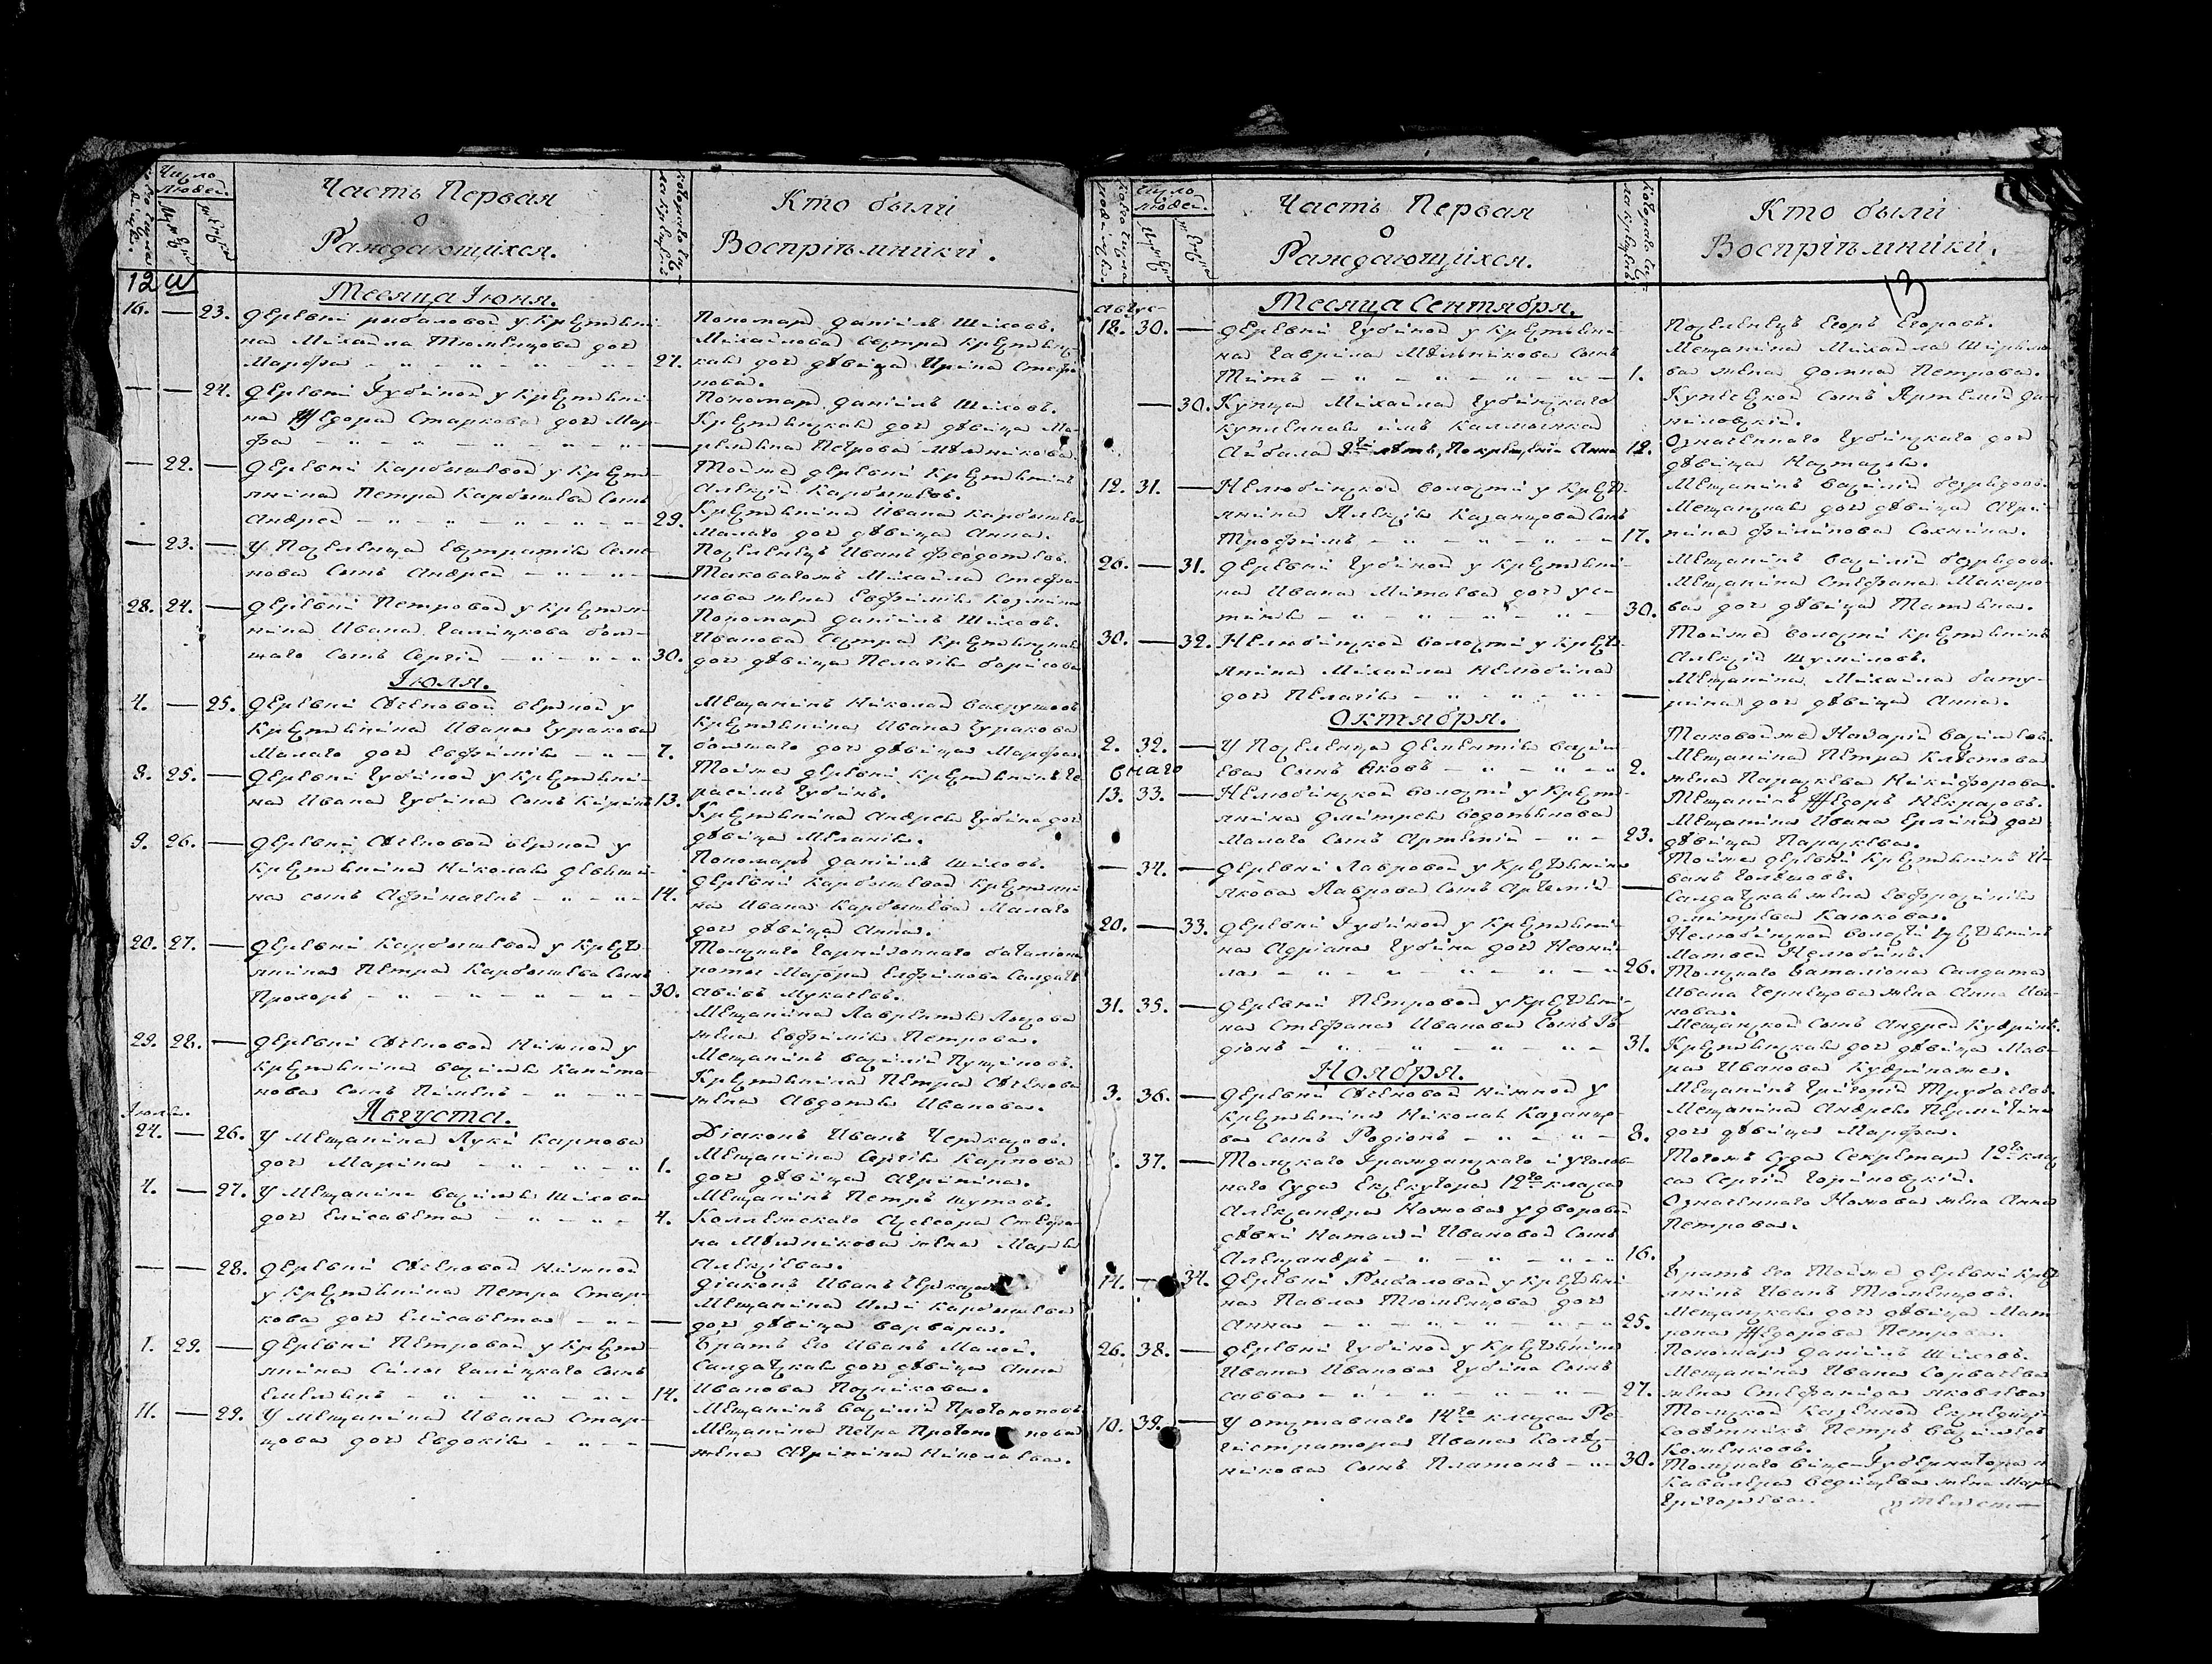 Число людей.
Часть Первая
о
Раждающихся.
Кто были
Воспріѣмники.
12
Месяца Іюня.
16. — 23. деревни рыбаловой у Крестьяни-
на Михайла Тюменцова дочь
Марѳа 27.
Пономарь даніилъ Шиховъ.
Михайлова сестра Крестьянс-
кая дочь дѣвица Ирина Стефа-
нова.
— — 24. деревни Губиной у Крестьяни-
на Ѳедора Старкова дочь Мар-
фа —
Пономарь даніилъ Шиховъ.
Крестьянская дочь дѣвица Ма-
ремьяна Петрова Мѣлникова.
— 22. — деревни Карбышевой у Крест-
янина Петра Карбышева сынъ
Андрей 29.
Тойже деревни Крестьянинъ
Алексій Карбышевъ.
Крестьянина Ивана Карбышева
Малаго дочь дѣвица Анна.
— 23. — У Поселенца Евстратія Семе-
нова сынъ Андрей —
Поселенецъ Иванъ Феодотьевъ.
Таковагожъ Михайла Стефа-
нова жена Евфимія Козмина
28. 24. — деревни Петровой у Крестья-
нина Ивана Галицкова бол-
шаго сынъ Сергій 30.
Пономарь даніилъ Шиховъ.
Иванова Сестра Крестьянская
дочь дѣвица Пелагія борисова
Іюля.
4. — 25. деревни Сѣченовой верхной у
Крестьянина Ивана Чуракова
Малаго дочь Евфимія 7.
Мещанинъ Николай Вахрушовъ
Крестьянина Ивана Чуракова
болшаго дочь дѣвица Марфа.
8. 25. — деревни Губиной у Крестьяни-
на Ивана Губина сынъ Кирикъ 13.
Тойже деревни Крестьянинъ Ге-
расимъ Губинъ.
Крестьянина Андрея Губина дочь
дѣвица Меланія.
9. 26. — деревни Сѣченовой верхной у
Крестьянина Николая девяши-
на сынъ Афиногенъ 14.
Пономарь даніилъ Шиховъ.
деревни Карбышевой Крестьяни-
на Ивана Карбышева Малаго
дочь дѣвица Анна.
20. 27. — деревни Карбышевой у Крест-
янина Петра Карбышева сынъ
Прохоръ 30.
Томскаго Гарнизоннаго баталіона
роты Маіора Евфимова Салдатъ
Авивъ Мукачевъ.
Мещанина Лаврентія Лосева
жена Евфимія Петрова.
29. 28. — деревни Сѣченовой Нижной у
Крестьянина Василія Капита-
нова сынъ Пименъ —
Мещанинъ Василій Пущиновъ.
Крестьянина Петра Сѣченова
жена Авдотья Иванова.
Августа.
Іюля.
24. — 26. У Мещанина Луки Карпова
дочь Марина 1.
Діаконъ Иванъ Черкасовъ.
Мещанина Сергія Карпова
дочь дѣвица Агрипина.
4. — 27. У Мещанина Василія Шихова
дочь Елисавета 4.
Мещанинъ Петръ Шутовъ.
Коллежскаго Ассесора Стефа-
на Мѣлникова жена Марья
Алексіева.
— — 28. деревни Сѣченовой Нижной
у Крестьянина Петра Стар-
кова дочь Елисавета —
діаконъ Иванъ Черкасовъ
Мещанина Ильи Карбышева
дочь дѣвица Варвара.
1. 29. — деревни Петровой у Крест-
янина Силы Галицкаго сынъ
Емельянъ 14.
Братъ Его Иванъ Малой.
Салдатская дочь дѣвица Анна
Иванова Позникова.
11. — 29. У Мещанина Ивана Стар-
цова дочь Евдокія —
Мещанинъ Василій Протопоповъ
Мещанина Петра Протопопова
жена Агрипина Николаева.
Число людей.
Часть Первая
о
Раждающихся.
Кто были
Воспріѣмники.
13
Месяца Сентября.
Авгус-
18. 30. — деревни Губиной у Крестьяни-
на Гаврила Мѣльникова сынъ
Титъ 1.
Поселенецъ Егоръ Егоровъ.
Мещанина Михайла Ширяе-
ва жена домна Петрова.
— 30. Купца Михайла Губинскаго
купленная имъ Калмычка
Айбала 9ти лѣтъ, По крещеніи Анна 12.
Купеческой сынъ Артемій да-
ниловскій.
Означеннаго Губинскаго дочь
дѣвица Настасья.
12. 31. — Нелюбинской волости у Крест-
янина Алексія Казанцова сынъ
Трофимъ 17.
Мещанинъ Василій безрядовъ.
Мещанская дочь дѣвица Агри-
пина Филипова Сохнина.
26. — 31. деревни Губиной у Крестьяни-
на Ивана Митаева дочь Ус-
тинья 30.
Мещанинъ Василій безрядовъ
Мещанина Стефана Макаро-
ва дочь дѣвица Татьяна.
30. — 32. Нелюбинской волости у Крест-
янина Михайла Нелюбина
дочь Пелагія —
Тойже волости Крестьянинъ
Алексій Шумиловъ.
Мещанина Михайла бату-
рина дочь дѣвица Анна.
Октября.
2. 32. — У Поселенца дементія Васил-
ева сынъ Яковъ 2.
Таковойже Назарій Васильевъ.
Мещанина Петра Клестова
жена Параскева Никифорова.
онаго
13. 33. — Нелюбинской волости у Крест-
янина дмитрея Водопьянова
Малаго сынъ Артемій 23.
Мещанинъ Ѳедоръ Некрасовъ.
Мещанина Ивана Ерлина дочь
дѣвица Параскева.
— 34. — деревни Лавровой у Крестьянина
Якова Лаврова сынъ Артемій —
Тойже деревни Крестьянинъ И-
ванъ Голѣшовъ.
Салдатская жена Евфросинія
дмитрева Каюкова.
20. — 33. деревни Губиной у Крестьяни-
на Адріана Губина дочь Неони-
ла 26.
Нелюбинской волости Крестьянинъ
Матвей Нелюбинъ.
Томскаго баталіона Салдата
Ивана Чернецова жена Анна Ива-
нова.
31. 35. — деревни Петровой у Крестьяни-
на Стефана Иванова сынъ Ро-
діонъ 31.
Мещанской сынъ Андрей Кудринъ.
Крестьянская дочь дѣвица Мав-
ра Иванова Кудринаже.
Ноября.
3. 36. — деревни Сѣченовой Нижной у
Крестьянина Николая Казанцо-
ва сынъ Родіонъ 8.
Мещанинъ Григорій Трубачевъ.
Мещанина Андрея Пермитина
дочь дѣвица Марфа.
37. — Томскаго Гражданскаго и уголов-
наго Суда Екзекутора 12го класса
Александра Ножова у дворовой
дѣвки Натальи Ивановой сынъ
Александръ 16.
Тогожъ Суда Секретарь 12го клас
са Сергій Гориновскій.
Означеннаго Ножова жена Анна
Петрова.
14. — 34. деревни Рыбаловой у Крестьяни-
на Павла Тюменцова дочь
Анна 25.
Братъ Его Тойже деревни Крест
янинъ Иванъ Тюменцовъ.
Мещанская дочь дѣвица Мат
рона Ѳедорова Петрова.
26. 38. — деревни Губиной у Крестьянина
Ивана Иванова Губина сынъ
Савва 27.
Пономарь даніилъ Шиховъ.
Мещанина Ивана Горбачева
жена Стефанида Яковлева
10. 39. — У отставнаго 14го класса Ре-
гистратора Ивана Колѣс-
никова сынъ Платонъ 30.
Томской Казенной Експедиціи
Совѣтникъ Петръ Васильевъ
Коженковъ.
Томскаго Вице-Губернатора и
Кавалера жена Марья
Григорьева.